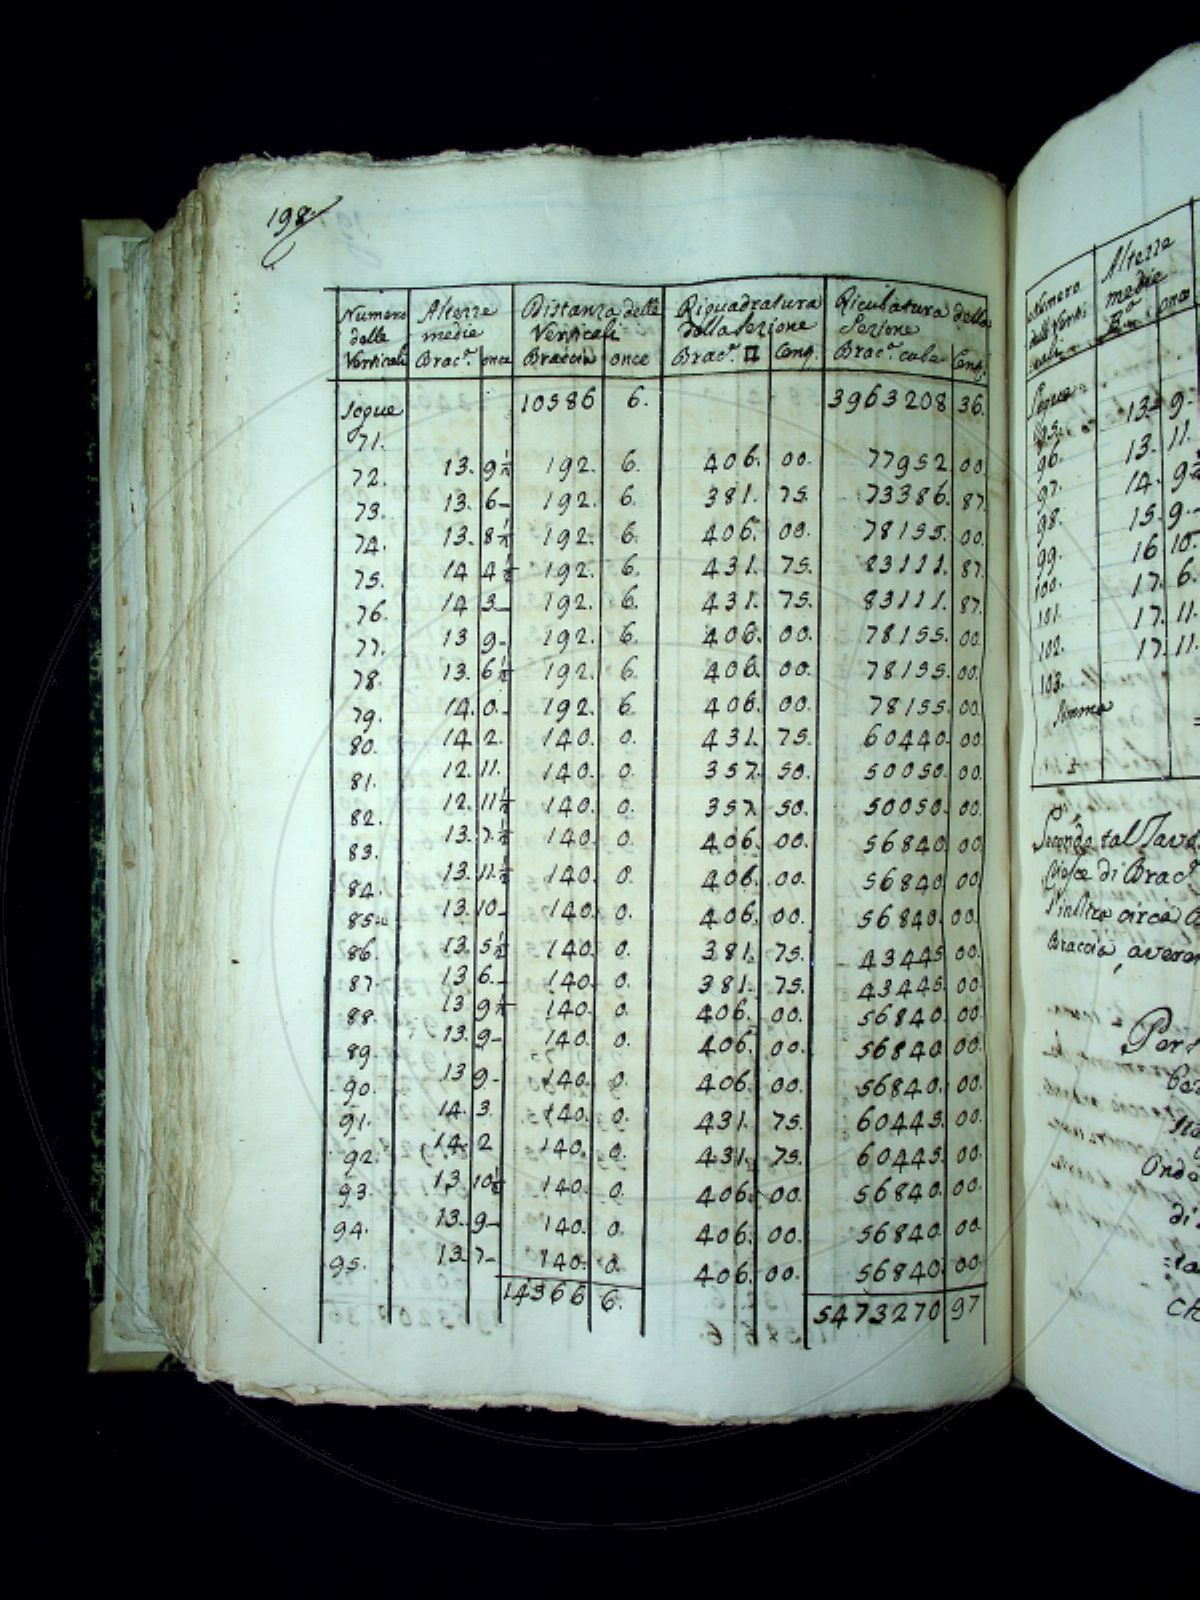 198
Numero delle Verticali | Alterre medie Brac.ª | once | Distanza delle Verticali Braccia | once | Riquadratura della Sezione Brac.ª □ | Cenq. | Riculatura della Sezione Brac.ª cube | Cenq.
Segue | 10586 6. | 3963208 36.
71.
72. 13. 9½ 192. 6. 406. 00. 77952 00
73. 13. 6 192. 6. 381. 75. 73386. 87.
74. 13. 8½ 192. 6. 406. 00. 78155. 00.
75. 14 4½ 192. 6. 431. 75. 83111. 87.
76. 14 3 192. 6. 431. 75. 83111. 87.
77. 13 9 192. 6. 406. 00. 78155. 00.
78. 13. 6½ 192. 6. 406. 00. 78155. 00.
79. 14. 0. 192. 6 406. 00. 78155. 00.
80. 14 2. 140. 0. 431. 75. 60440. 00.
81. 12. 11. 140. 0. 357. 50. 50050. 00.
82. 12. 11½ 140. 0. 357. 50. 50050. 00.
83. 13. 7½ 140. 0. 406. 00. 56840. 00.
84. 13. 11½ 140. 0. 406. 00. 56840 00.
85. 13. 10 140. 0. 406. 00. 56840. 00.
86. 13. 5½ 140. 0. 381. 75. 43445 00.
87. 13 6. 140. 0. 381. 75. 43445. 00.
88. 13 9½ 140. 0. 406. 00. 56840. 00.
89. 13. 9 140. 0. 406. 00. 56840 00.
90. 13 9 140. 0. 406. 00. 56840. 00.
91. 14. 3. 140. 0. 431. 75. 60445. 00.
92. 14. 2 140. 0. 431. 75. 60445. 00.
93. 13. 10½ 140. 0. 406. 00. 56840. 00.
94. 13. 9 140. 0. 406. 00. 56840. 00.
95. 13. 7 140. 0. 406. 00. 56840. 00.
14366 6. 5473270 97
Numero dell Verti: cali | Alterre medie | once
Segue
95. 13. 9.
96. 13. 11.
97. 14. 9½
98. 15. 9.
99. 16 10.
100. 17. 6.
101. 17. 11.
102. 17. 11.
103.
Somma
Secondo tal Tavo
di Brac.ª
circa
Braccia, averem
Per
Onda
di